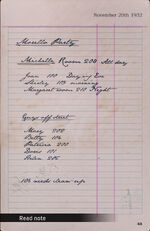 November 20th 1932
Morello Party
Michelle Room 200 All day
Joan 100 Day-ing Eve
Shirley 103 morning
Margaret room 210 Night
Guys off shift
Mary 202
Betty 106
Patricia 200
Doris 101
Helen 205
102 needs clean-up
Read note